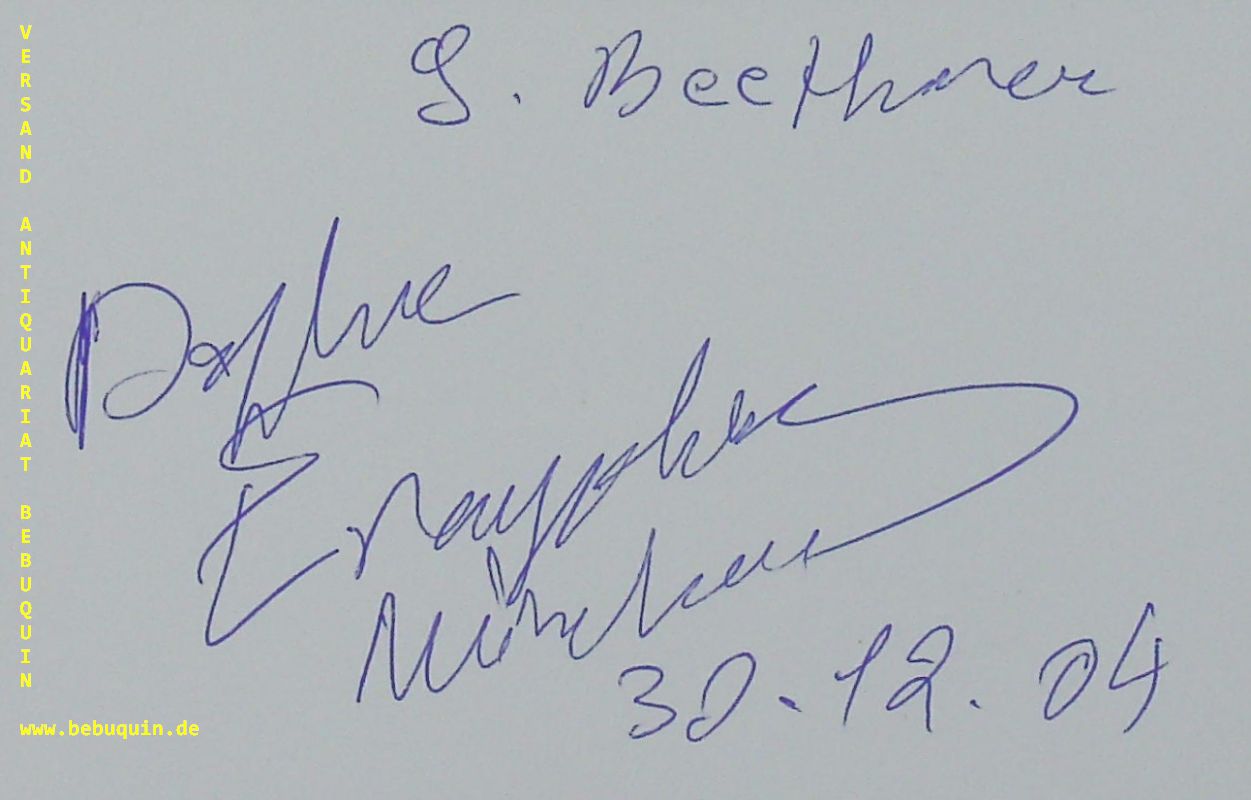 VERSAND ANTIQUARIAT BEBUQUIN
www.bebuquin.de
9. Beethoven
Daphne
Evangelatos
München
30.12.04